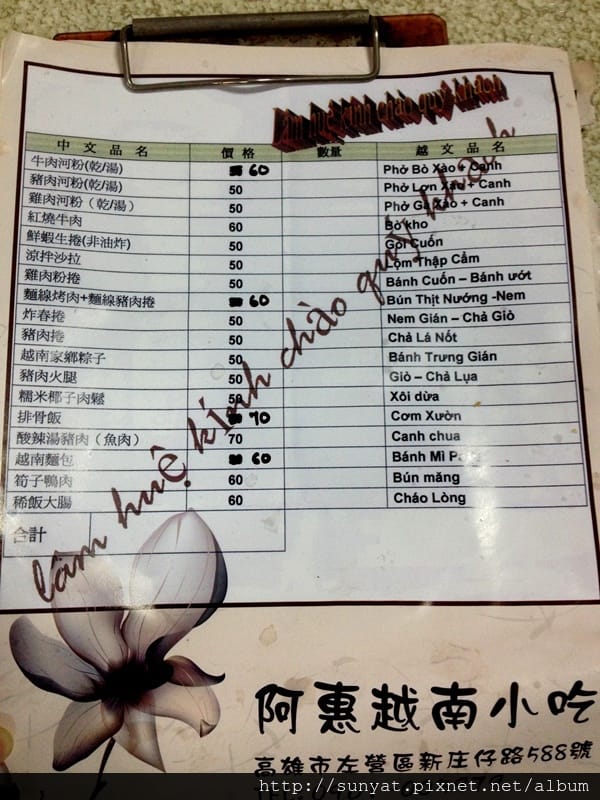 lâm huệ kính chào quý khách
中 文 品 名 價 格 數量 越 文 品 名
牛肉河粉(乾/湯) 60 Phở Bò Xào + Canh
豬肉河粉(乾/湯) 50 Phở Lợn Xào + Canh
雞肉河粉(乾/湯) 50 Phở Gà Xào + Canh
紅燒牛肉 60 Bò kho
鮮蝦生捲(非油炸) 50 Gỏi Cuốn
涼拌沙拉 50 Lộm Thập Cẩm
雞肉粉捲 50 Bánh Cuốn – Bánh ướt
麵線烤肉+麵線豬肉捲 60 Bún Thịt Nướng -Nem
炸春捲 50 Nem Gián – Chả Giò
豬肉捲 50 Chả Lá Nốt
越南家鄉粽子 50 Bánh Trưng Gián
豬肉火腿 50 Giò – Chả Lụa
糯米椰子肉鬆 50 Xôi dừa
排骨飯 70 Cơm Xườn
酸辣湯豬肉（魚肉） 70 Canh chua
越南麵包 60 Bánh Mì
筍子鴨肉 60 Bún măng
稀飯大腸 60 Cháo Lòng
合計
lâm huệ kính chào quý khách
阿惠越南小吃
高雄市左營區新庄仔路588號
http://sunyat.pixnet.net/album